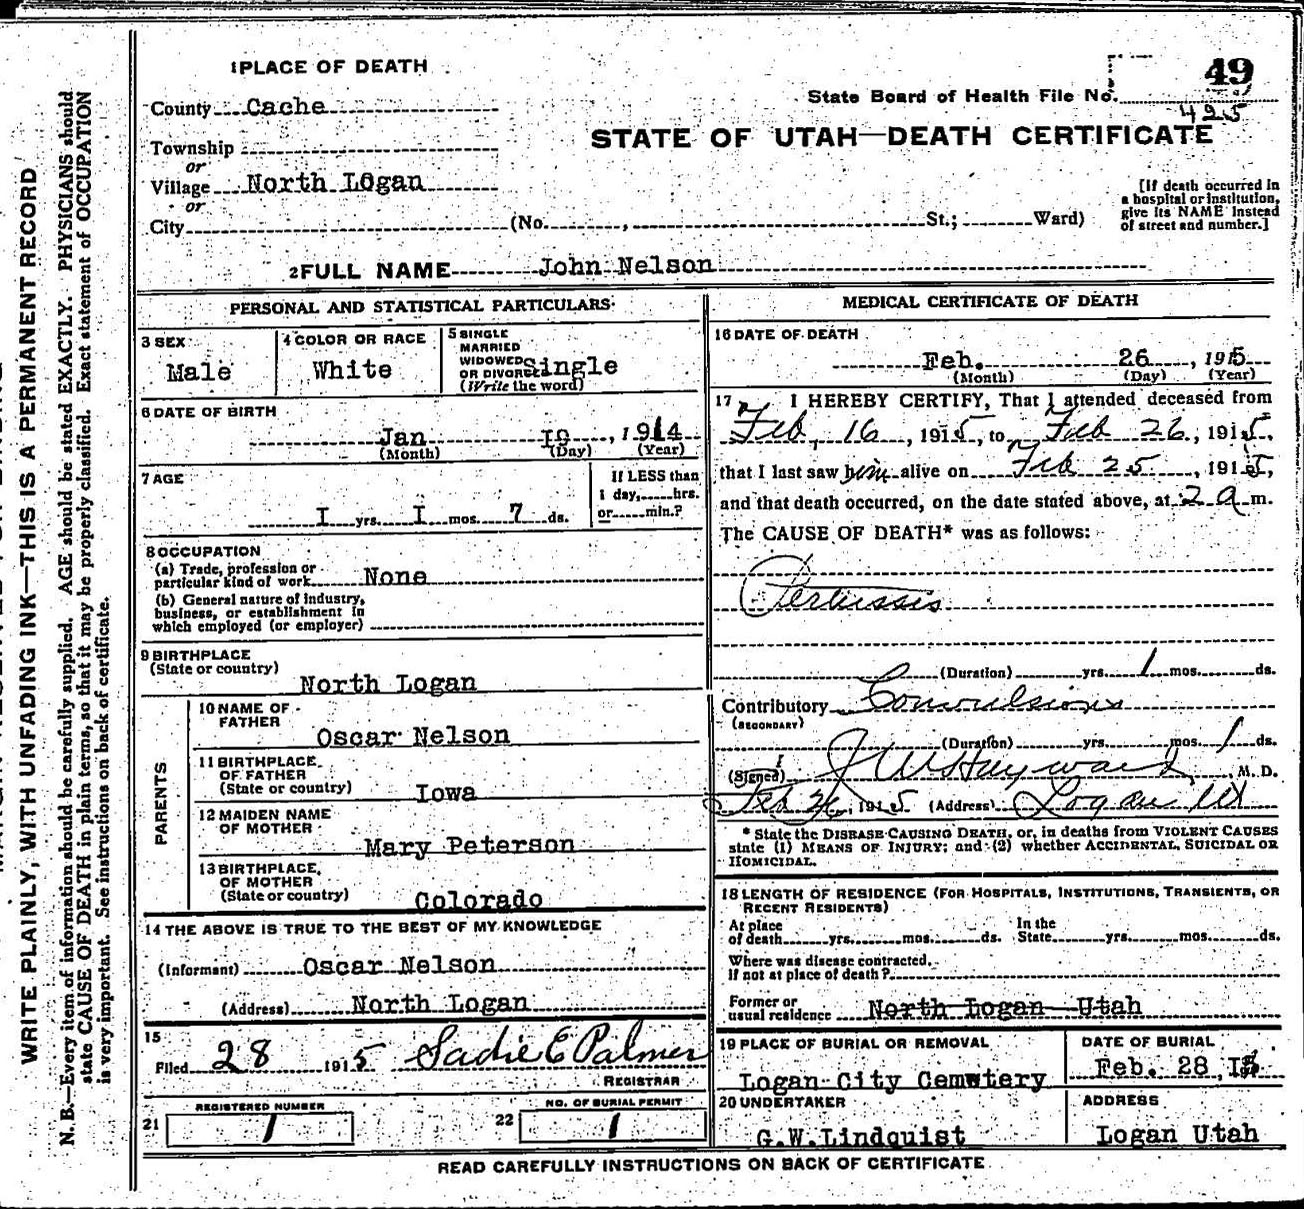 1 PLACE OF DEATH
49
County Cache
State Board of Health File No.
425
STATE OF UTAH—DEATH CERTIFICATE
Township
or
Village North Logan
or
City (No. , St.; Ward)
[If death occurred in
a hospital or institution,
give its NAME instead
of street and number.]
2 FULL NAME John Nelson
PERSONAL AND STATISTICAL PARTICULARS
3 SEX
Male
4 COLOR OR RACE
White
5 SINGLE
MARRIED
WIDOWED
OR DIVORCED
(Write the word)
Single
6 DATE OF BIRTH
Jan 19, 1914
(Month) (Day) (Year)
7 AGE
I yrs. I mos. 7 ds.
If LESS than
1 day, hrs.
or min.?
8 OCCUPATION
(a) Trade, profession or
particular kind of work None
(b) General nature of industry,
business, or establishment in
which employed (or employer)
9 BIRTHPLACE
(State or country)
North Logan
PARENTS
10 NAME OF
FATHER
Oscar Nelson
11 BIRTHPLACE
OF FATHER
(State or country)
Iowa
12 MAIDEN NAME
OF MOTHER
Mary Peterson
13 BIRTHPLACE
OF MOTHER
(State or country)
Colorado
14 THE ABOVE IS TRUE TO THE BEST OF MY KNOWLEDGE
(Informant) Oscar Nelson
(Address) North Logan
15
Filed 28 1915 Sadie E Palmer
REGISTRAR
21
REGISTERED NUMBER
1
22
NO. OF BURIAL PERMIT
1
MEDICAL CERTIFICATE OF DEATH
16 DATE OF DEATH
Feb. 26, 1915
(Month) (Day) (Year)
17 I HEREBY CERTIFY, That I attended deceased from
Feb, 16, 1915, to Feb 26, 1915,
that I last saw him alive on Feb 25, 1915,
and that death occurred, on the date stated above, at 2 a m.
The CAUSE OF DEATH* was as follows:
Pertussis
(Duration) yrs. 1 mos. ds.
Contributory Convulsions
(SECONDARY)
(Duration) yrs. mos. 1 ds.
(Signed) J W Hayward, M. D.
Feb 26, 1915 (Address) Logan Ut
* State the DISEASE CAUSING DEATH, or, in deaths from VIOLENT CAUSES
state (1) MEANS OF INJURY; and (2) whether ACCIDENTAL, SUICIDAL OR
HOMICIDAL.
18 LENGTH OF RESIDENCE (FOR HOSPITALS, INSTITUTIONS, TRANSIENTS, OR
RECENT RESIDENTS)
At place
of death yrs. mos. ds.
In the
State yrs. mos. ds.
Where was disease contracted,
if not at place of death?
Former or
usual residence North Logan Utah
19 PLACE OF BURIAL OR REMOVAL
Logan City Cemwtery
DATE OF BURIAL
Feb. 28, 15
20 UNDERTAKER
G.W.Lindquist
ADDRESS
Logan Utah
READ CAREFULLY INSTRUCTIONS ON BACK OF CERTIFICATE
WRITE PLAINLY, WITH UNFADING INK—THIS IS A PERMANENT RECORD
N. B.—Every item of information should be carefully supplied. AGE should be stated EXACTLY. PHYSICIANS should
state CAUSE OF DEATH in plain terms, so that it may be properly classified. Exact statement of OCCUPATION
is very important. See instructions on back of certificate.